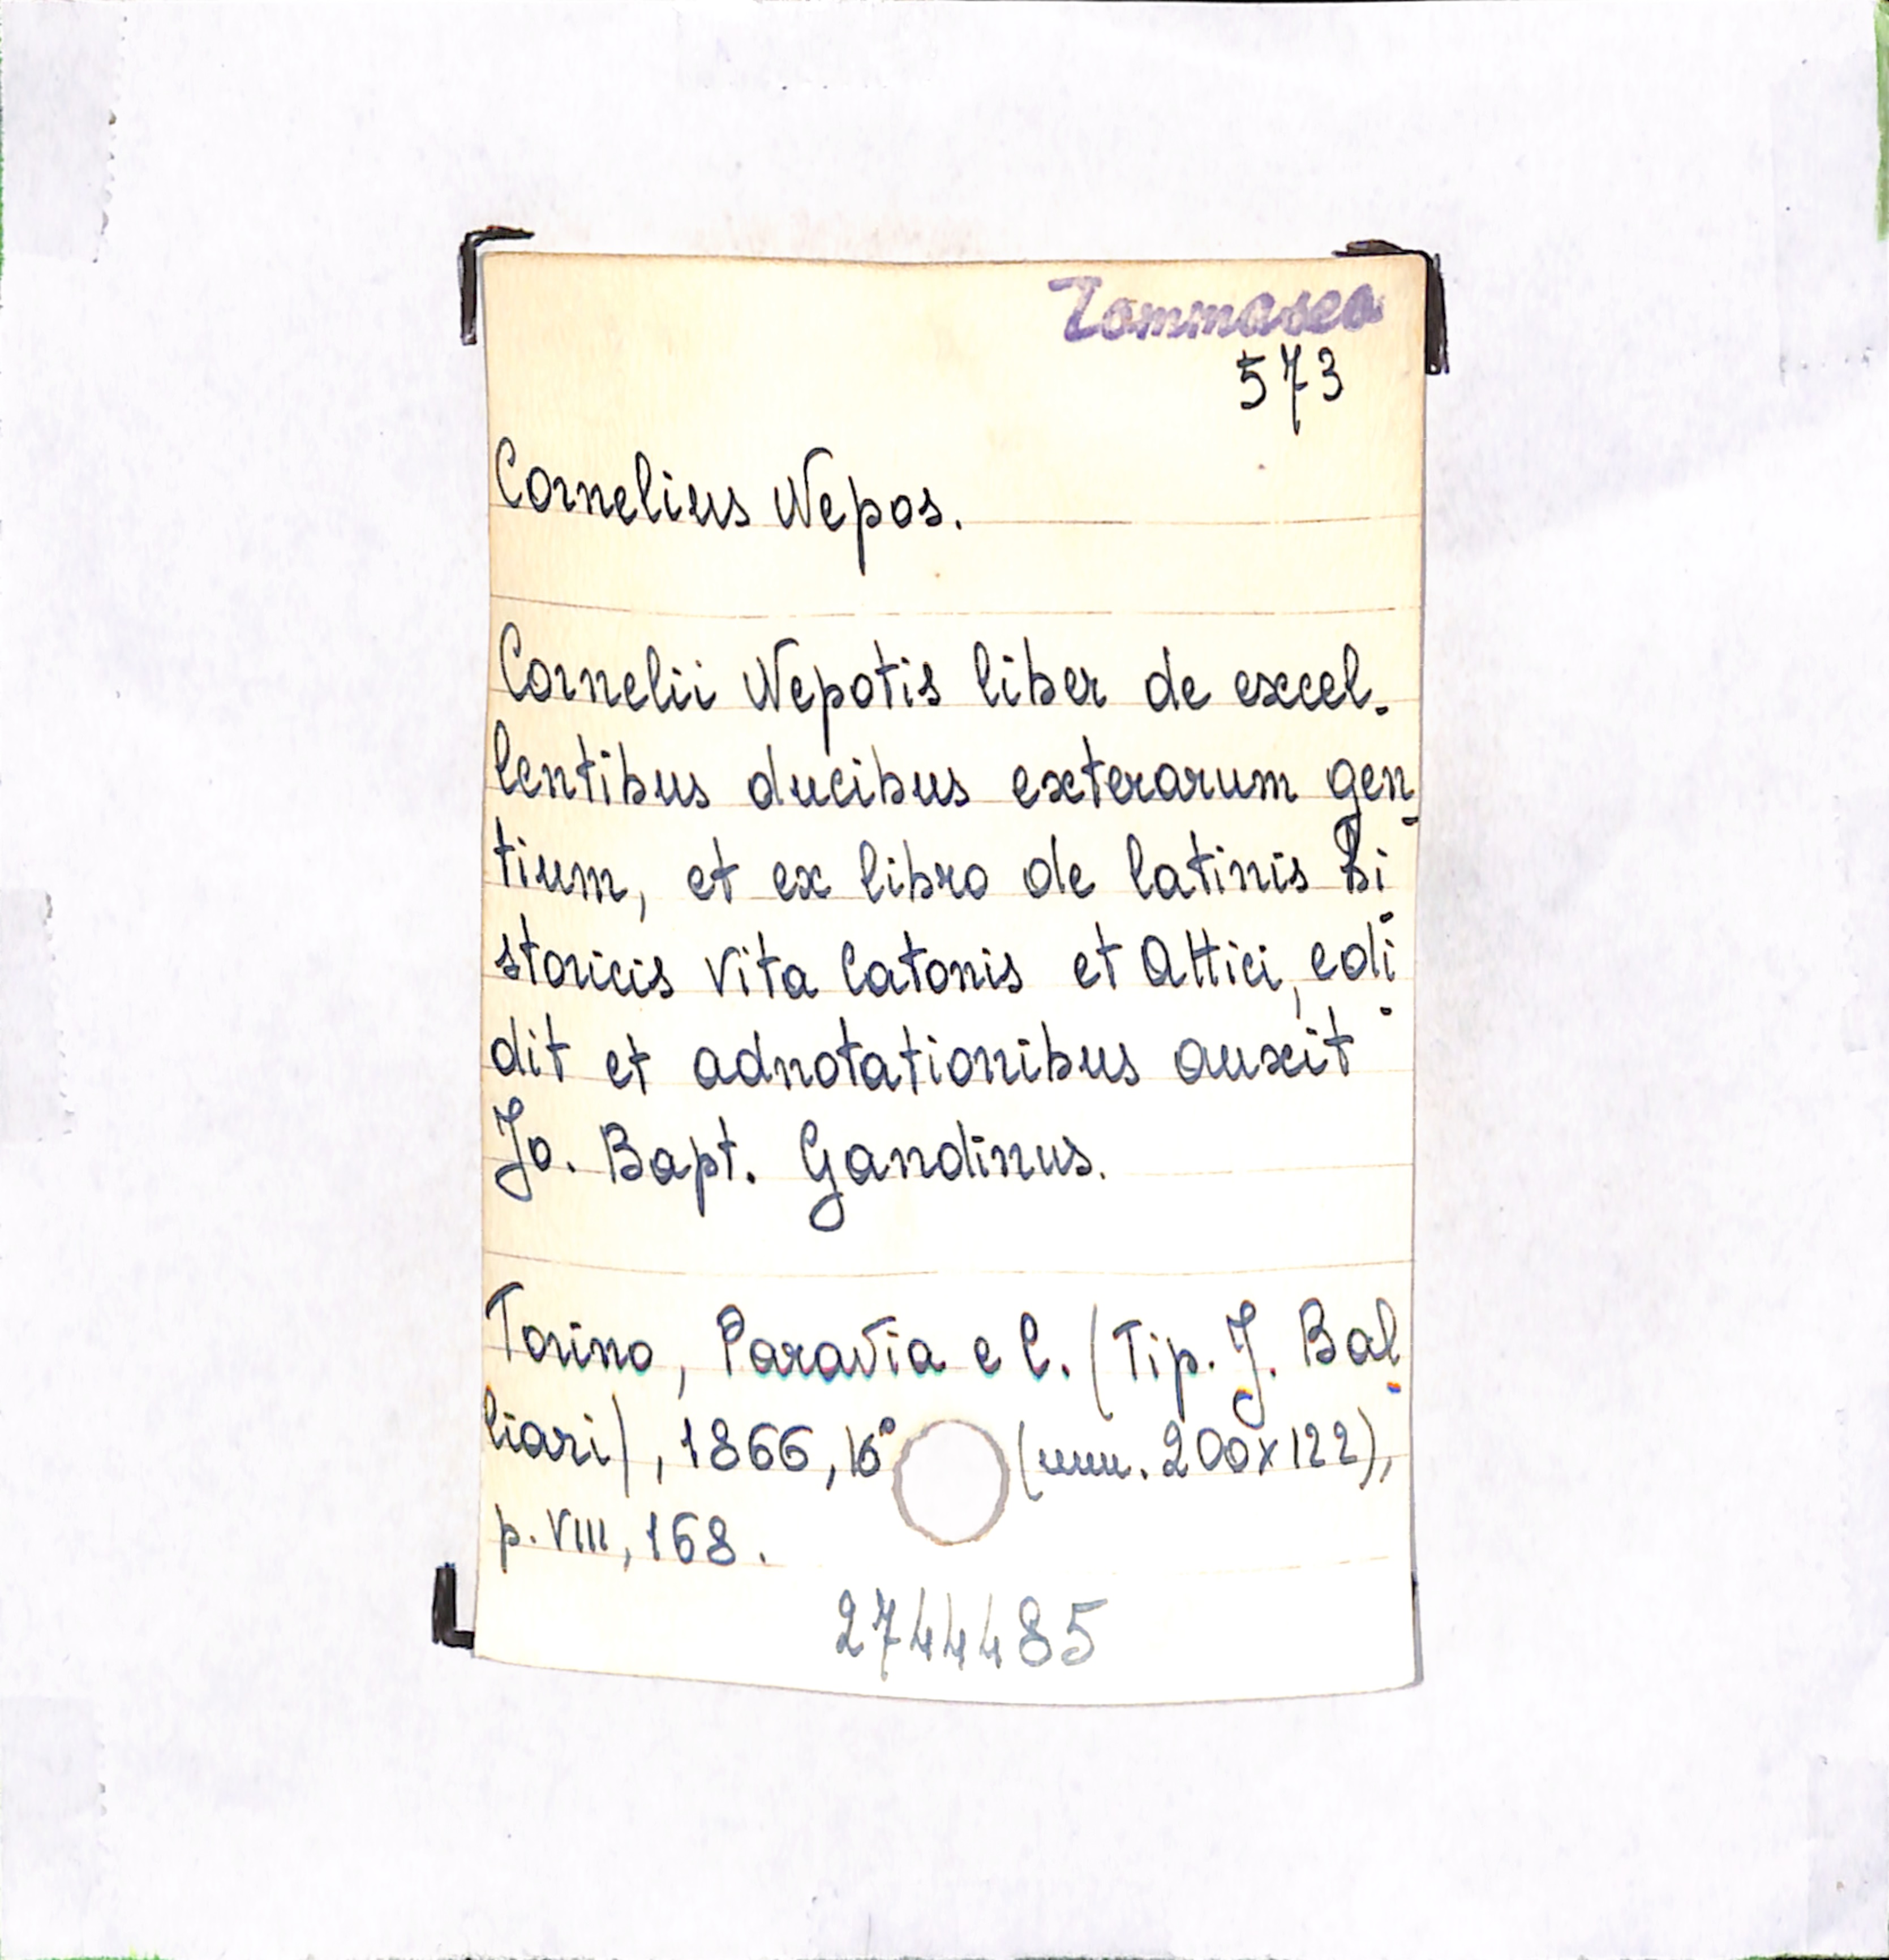 Tommaseo
573
Cornelius Nepos.
Cornelii Nepotis liber de excel-
lentibus ducibus exterarum gen-
tium, et ex libro de latinis hi-
storicis vita Catonis et Attici, edi-
dit et adnotationibus auxit
Jo. Bapt. Gandinus.
Torino, Paravia e C. (Tip. J. Bal-
liari), 1866, 16° (mm. 200x122),
p. VIII, 168.
2744485